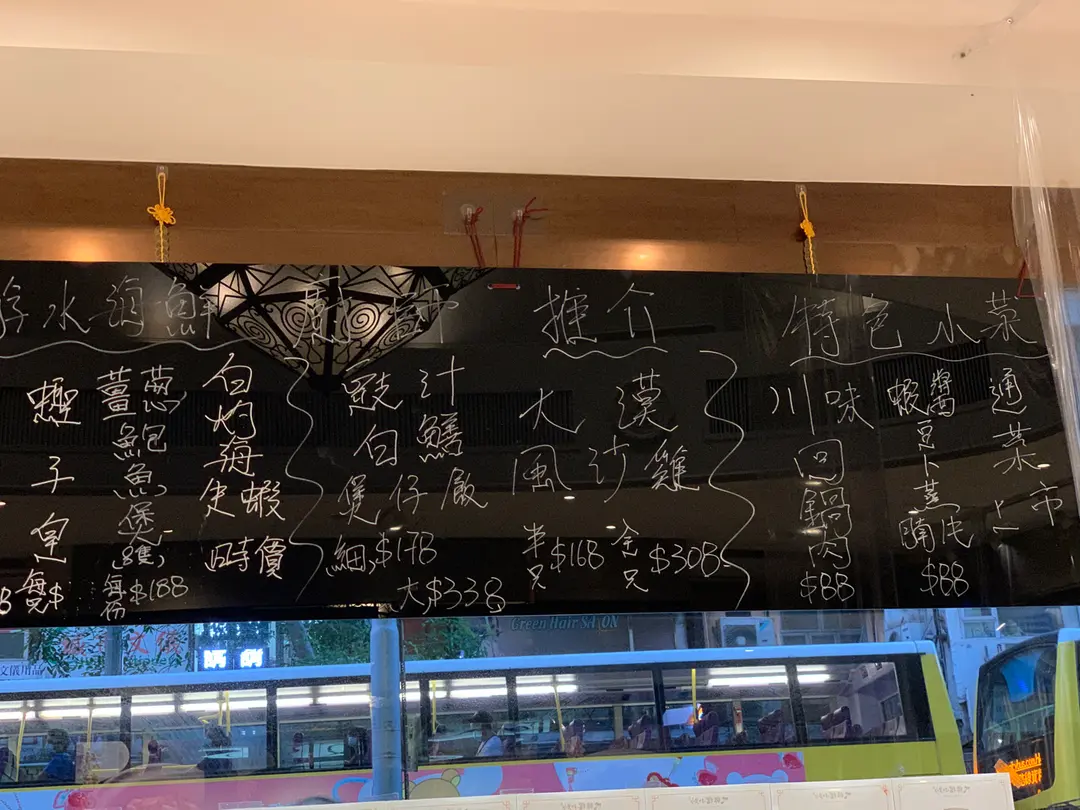 水海鮮
廚師推介
特色小菜
薑蔥鮑魚煲
每份$188
白灼海生蝦
時價
豉汁白鱔煲仔飯
細$178
大$338
大漠風沙雞
半只$168
全只$308
川味回鍋肉
$88
蝦醬豆卜蒸腩
$88
通菜上市
Green Hair SALON